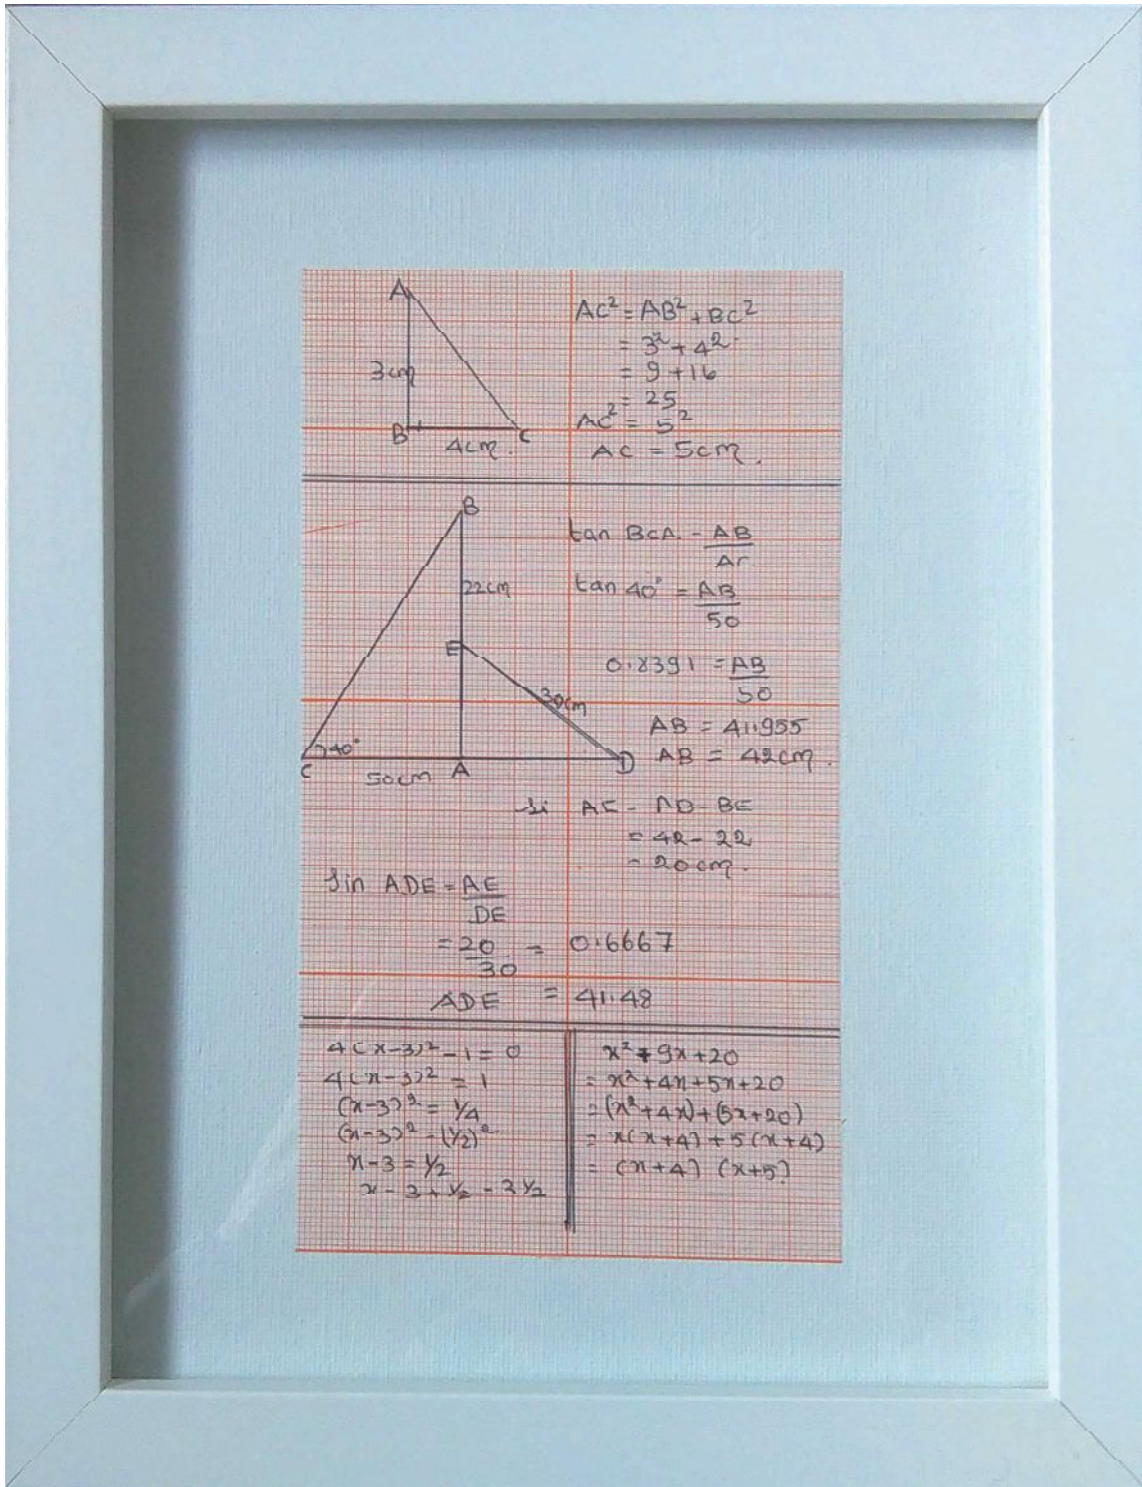 A
3cm
B
4cm.
C
AC² = AB² + BC²
= 3² + 4²
= 9 + 16
= 25
AC² = 5²
AC = 5cm.
B
22cm
E
30cm
C
40°
50cm
A
D
tan BCA = AB/AC
tan 40° = AB/50
0.8391 = AB/50
AB = 41.955
AB = 42cm.
AE = AB - BE
= 42 - 22
= 20cm.
Sin ADE = AE/DE
= 20/30 = 0.6667
ADE = 41.48
4(x-3)² - 1 = 0
4(x-3)² = 1
(x-3)² = 1/4
(x-3)² = (1/2)²
x-3 = 1/2
x = 3 + 1/2 = 3 1/2
x² + 9x + 20
= x² + 4x + 5x + 20
= (x² + 4x) + (5x + 20)
= x(x+4) + 5(x+4)
= (x+4) (x+5)